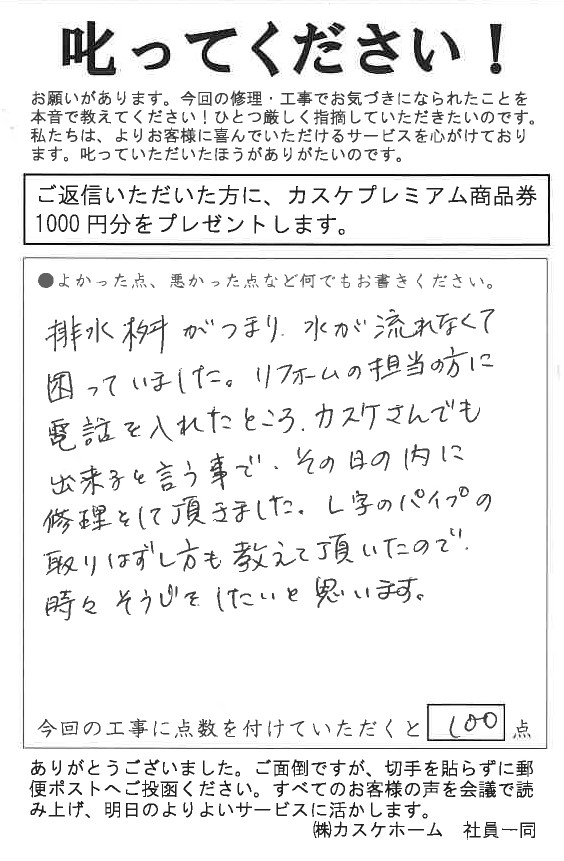 叱ってください！
お願いがあります。今回の修理・工事でお気づきになられたことを
本音で教えてください！ひとつ厳しく指摘していただきたいのです。
私たちは、よりお客様に喜んでいただけるサービスを心がけており
ます。叱っていただいたほうがありがたいのです。
ご返信いただいた方に、カスケプレミアム商品券
1000円分をプレゼントします。
●よかった点、悪かった点など何でもお書きください。
排水桝がつまり、水が流れなくて
困っていました。リフォームの担当の方に
電話を入れたところ、カスケさんでも
出来ると言う事で、その日の内に
修理をして頂きました。L字のパイプの
取りはずし方も教えて頂いたので、
時々そうじをしたいと思います。
今回の工事に点数を付けていただくと 100 点
ありがとうございました。ご面倒ですが、切手を貼らずに郵
便ポストへご投函ください。すべてのお客様の声を会議で読
み上げ、明日のよりよいサービスに活かします。
㈱カスケホーム 社員一同